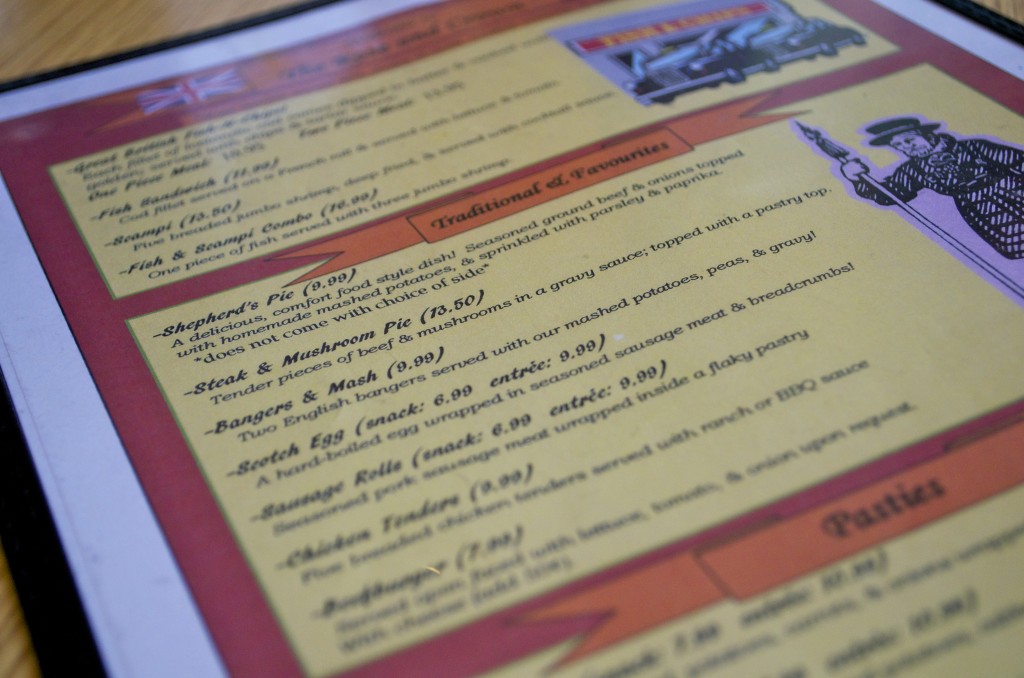 FISH & CHIPS
Great British Fish & Chips!
One Piece Meal: 10.95 Two Piece Meal:
-Fish Sandwich (11.99)
Cod fillet served on a French roll & served with lettuce & tomato.
-Scampi (13.50)
Five breaded jumbo shrimp, deep fried, & served with cocktail sauce.
-Fish & Scampi Combo (16.99)
One piece of fish served with three jumbo shrimp.
Traditional & Favourites
-Shepherd's Pie (9.99)
A delicious, comfort food style dish! Seasoned ground beef & onions topped
with homemade mashed potatoes, & sprinkled with parsley & paprika.
*does not come with choice of side*
-Steak & Mushroom Pie (13.50)
Tender pieces of beef & mushrooms in a gravy sauce; topped with a pastry top.
-Bangers & Mash (9.99)
Two English bangers served with our mashed potatoes, peas, & gravy!
-Scotch Egg (snack: 6.99 entrée: 9.99)
A hard-boiled egg wrapped in seasoned sausage meat & breadcrumbs!
-Sausage Rolls (snack: 6.99 entrée: 9.99)
Seasoned pork sausage meat wrapped inside a flaky pastry
-Chicken Tenders (9.99)
Five breaded chicken tenders served with ranch or BBQ sauce
-Beefburger (7.99)
Served upon bread with lettuce, tomato, & onion upon request.
With cheese (add 50¢).
Pasties